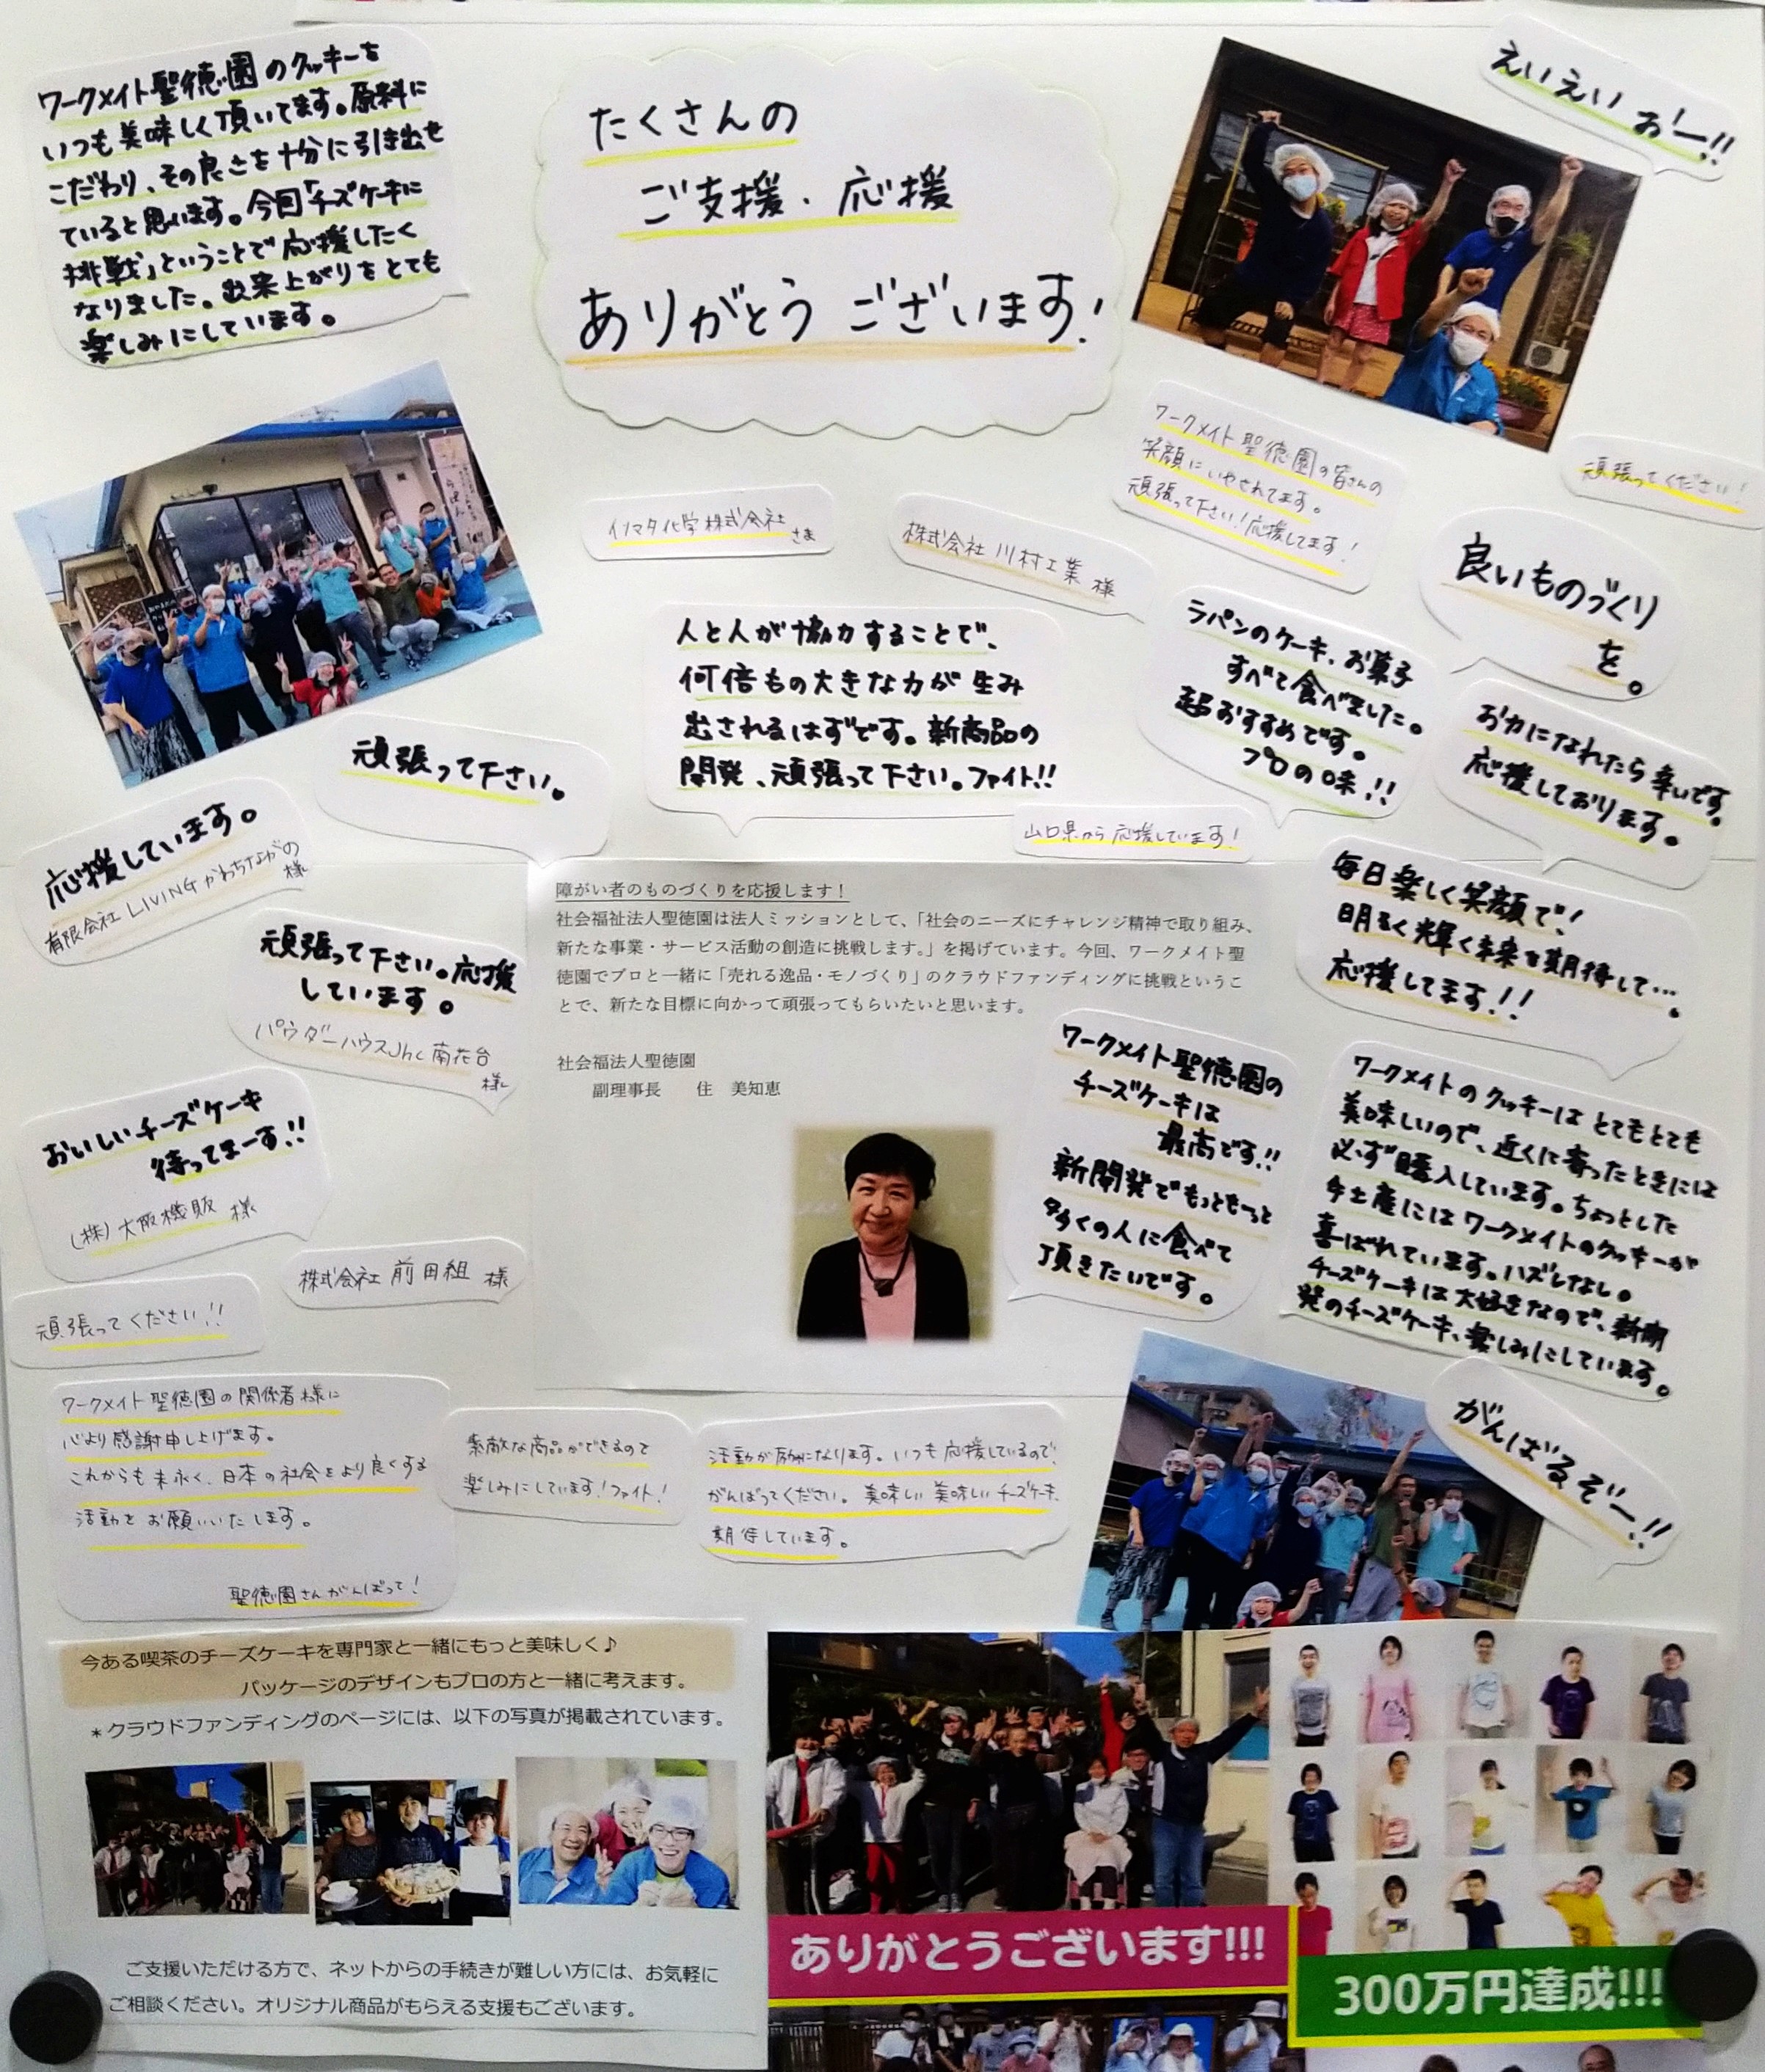 ワークメイト聖徳園のクッキーを
いつも美味しく頂いてます。原料に
こだわり、その良さを十分に引き出せ
ていると思います。今回「チーズケーキに
挑戦」ということで応援したく
なりました。出来上がりをとても
楽しみにしています。
たくさんの
ご支援、応援
ありがとうございます!
えいえいおー!!
ワークメイト聖徳園の皆さんの
笑顔にいやされてます。
頑張って下さい!応援してます!
頑張ってください!
イノマタ化学株式会社
さま
株式会社 川村工業 様
良いものづくり
を。
人と人が協力することで、
何倍もの大きな力が生み
出されるはずです。新商品の
開発、頑張って下さい。ファイト!!
ラパンのケーキ、お菓子
すべて食べました。
超おすすめです。
プロの味!!
お力になれたら幸いです。
応援しております。
頑張って下さい。
山口県から応援しています!
応援しています。
有限会社 LIVINGかわちながの
様
頑張って下さい。応援
しています。
パウダーハウスJhc南花台
様
毎日楽しく笑顔で!
明るく輝く未来を期待して…
応援してます!!
障がい者のものづくりを応援します!
社会福祉法人聖徳園は法人ミッションとして、「社会のニーズにチャレンジ精神で取り組み、
新たな事業・サービス活動の創造に挑戦します。」を掲げています。今回、ワークメイト聖
徳園でプロと一緒に「売れる逸品・モノづくり」のクラウドファンディングに挑戦というこ
とで、新たな目標に向かって頑張ってもらいたいと思います。
社会福祉法人聖徳園
副理事長 住 美知恵
おいしいチーズケーキ
待ってまーす!!
(株)大阪機販 様
株式会社 前田組 様
頑張ってください!!
ワークメイト聖徳園の
チーズケーキは
最高です!!
新開発でもっともーっと
多くの人に食べて
頂きたいです。
ワークメイトのクッキーはとてもとても
美味しいので、近くに寄ったときには
必ず購入しています。ちょっとした
手土産にはワークメイトのクッキーが
喜ばれています。ハズレなし。
チーズケーキは大好きなので、新開
発のチーズケーキ、楽しみにしています。
ワークメイト聖徳園の関係者様に
心より感謝申し上げます。
これからも末永く、日本の社会をより良くする
活動をお願いいたします。
聖徳園さんがんばって!
素敵な商品ができるので
楽しみにしています!ファイト!
活動が励みになります。いつも応援しているので、
がんばってください。美味しい美味しいチーズケーキ、
期待しています。
がんばるぞー!!
今ある喫茶のチーズケーキを専門家と一緒にもっと美味しく♪
パッケージのデザインもプロの方と一緒に考えます。
*クラウドファンディングのページには、以下の写真が掲載されています。
ご支援いただける方で、ネットからの手続きが難しい方には、お気軽に
ご相談ください。オリジナル商品がもらえる支援もございます。
ありがとうございます!!!
300万円達成!!!